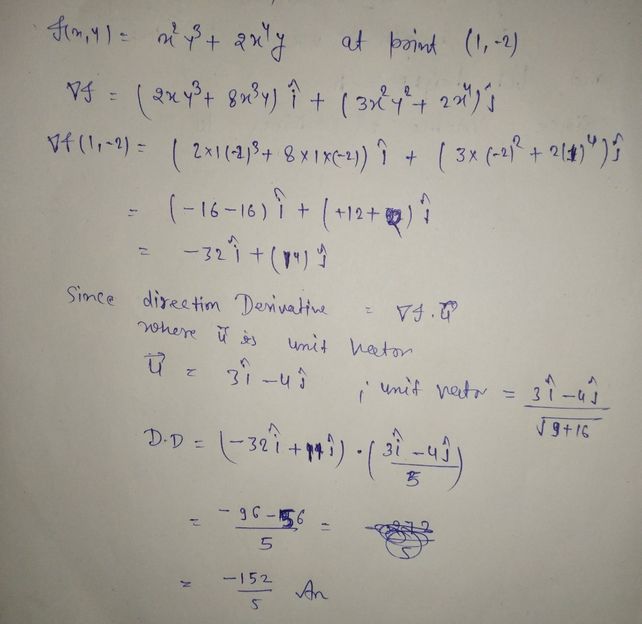 f(x,y) = x²y³ + 2x⁴y at point (1,-2)
∇f = (2xy³ + 8x³y) î + (3x²y² + 2x⁴) ĵ
∇f(1,-2) = (2×1(-2)³ + 8×1×(-2)) î + (3×(-2)² + 2(1)⁴) ĵ
= (-16-16) î + (+12+2) ĵ
= -32 î + (14) ĵ
Since direction Derivative = ∇f.u⃗
where u⃗ is unit vector
u⃗ = 3î - 4ĵ ; unit vector = (3î - 4ĵ)/√(9+16)
D.D = (-32î + 14ĵ) · ((3î - 4ĵ)/5)
= (-96-56)/5 =
= -152/5 An